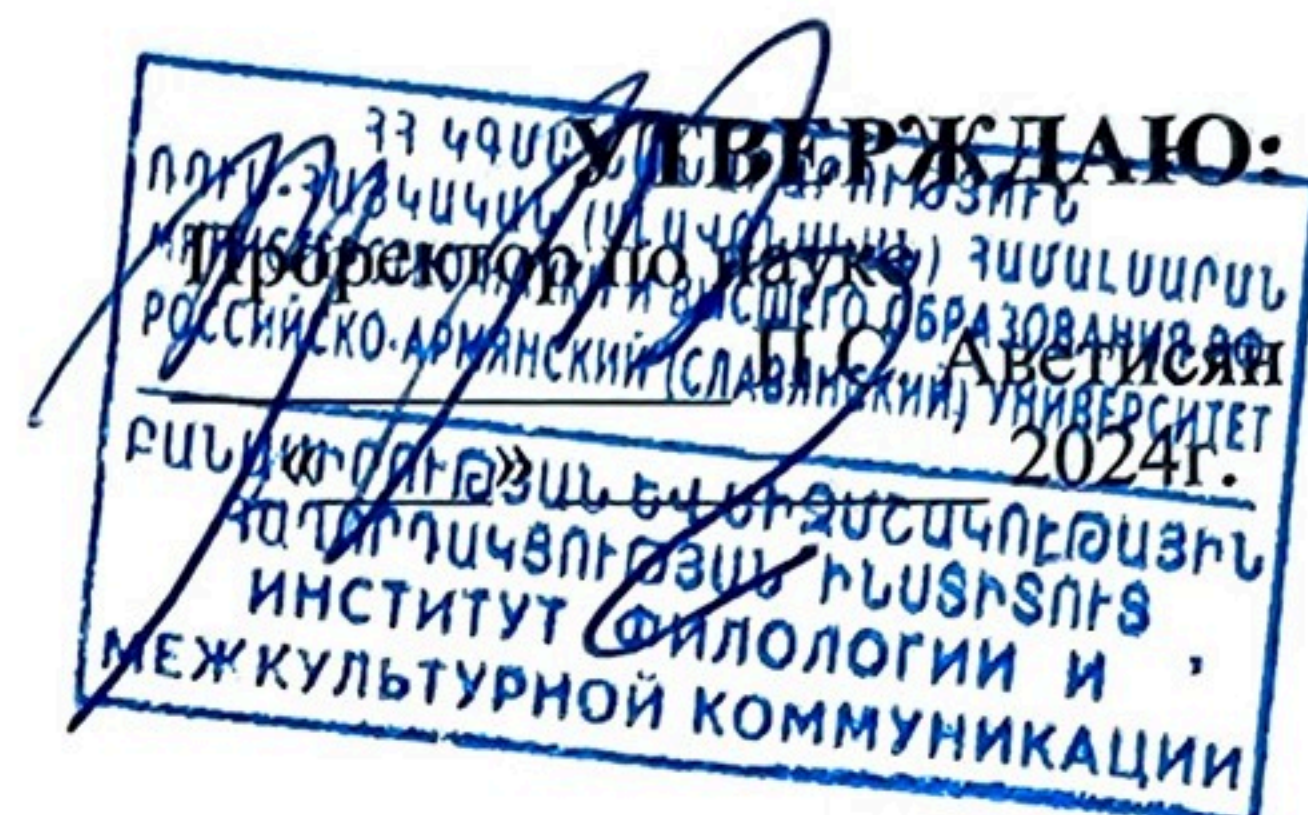 УТВЕРЖДАЮ:
Проректор по науке
П.С. Аветисян
«___» ___ 2024г.
ՀՀ ԿԳՄՍ
ՌՈՒՍ-ՀԱՅԿԱԿԱՆ (ՍԼԱՎՈՆԱԿԱՆ) ՀԱՄԱԼՍԱՐԱՆ
И ВЫСШЕГО ОБРАЗОВАНИЯ РФ
РОССИЙСКО-АРМЯНСКИЙ (СЛАВЯНСКИЙ) УНИВЕРСИТЕТ
ԲԱՆԱՍԻՐՈՒԹՅԱՆ ԵՎ ՄԻՋՄՇԱԿՈՒԹԱՅԻՆ
ՀԱՂՈՐԴԱԿՑՈՒԹՅԱՆ ԻՆՍՏԻՏՈՒՏ
ИНСТИТУТ ФИЛОЛОГИИ И
МЕЖКУЛЬТУРНОЙ КОММУНИКАЦИИ